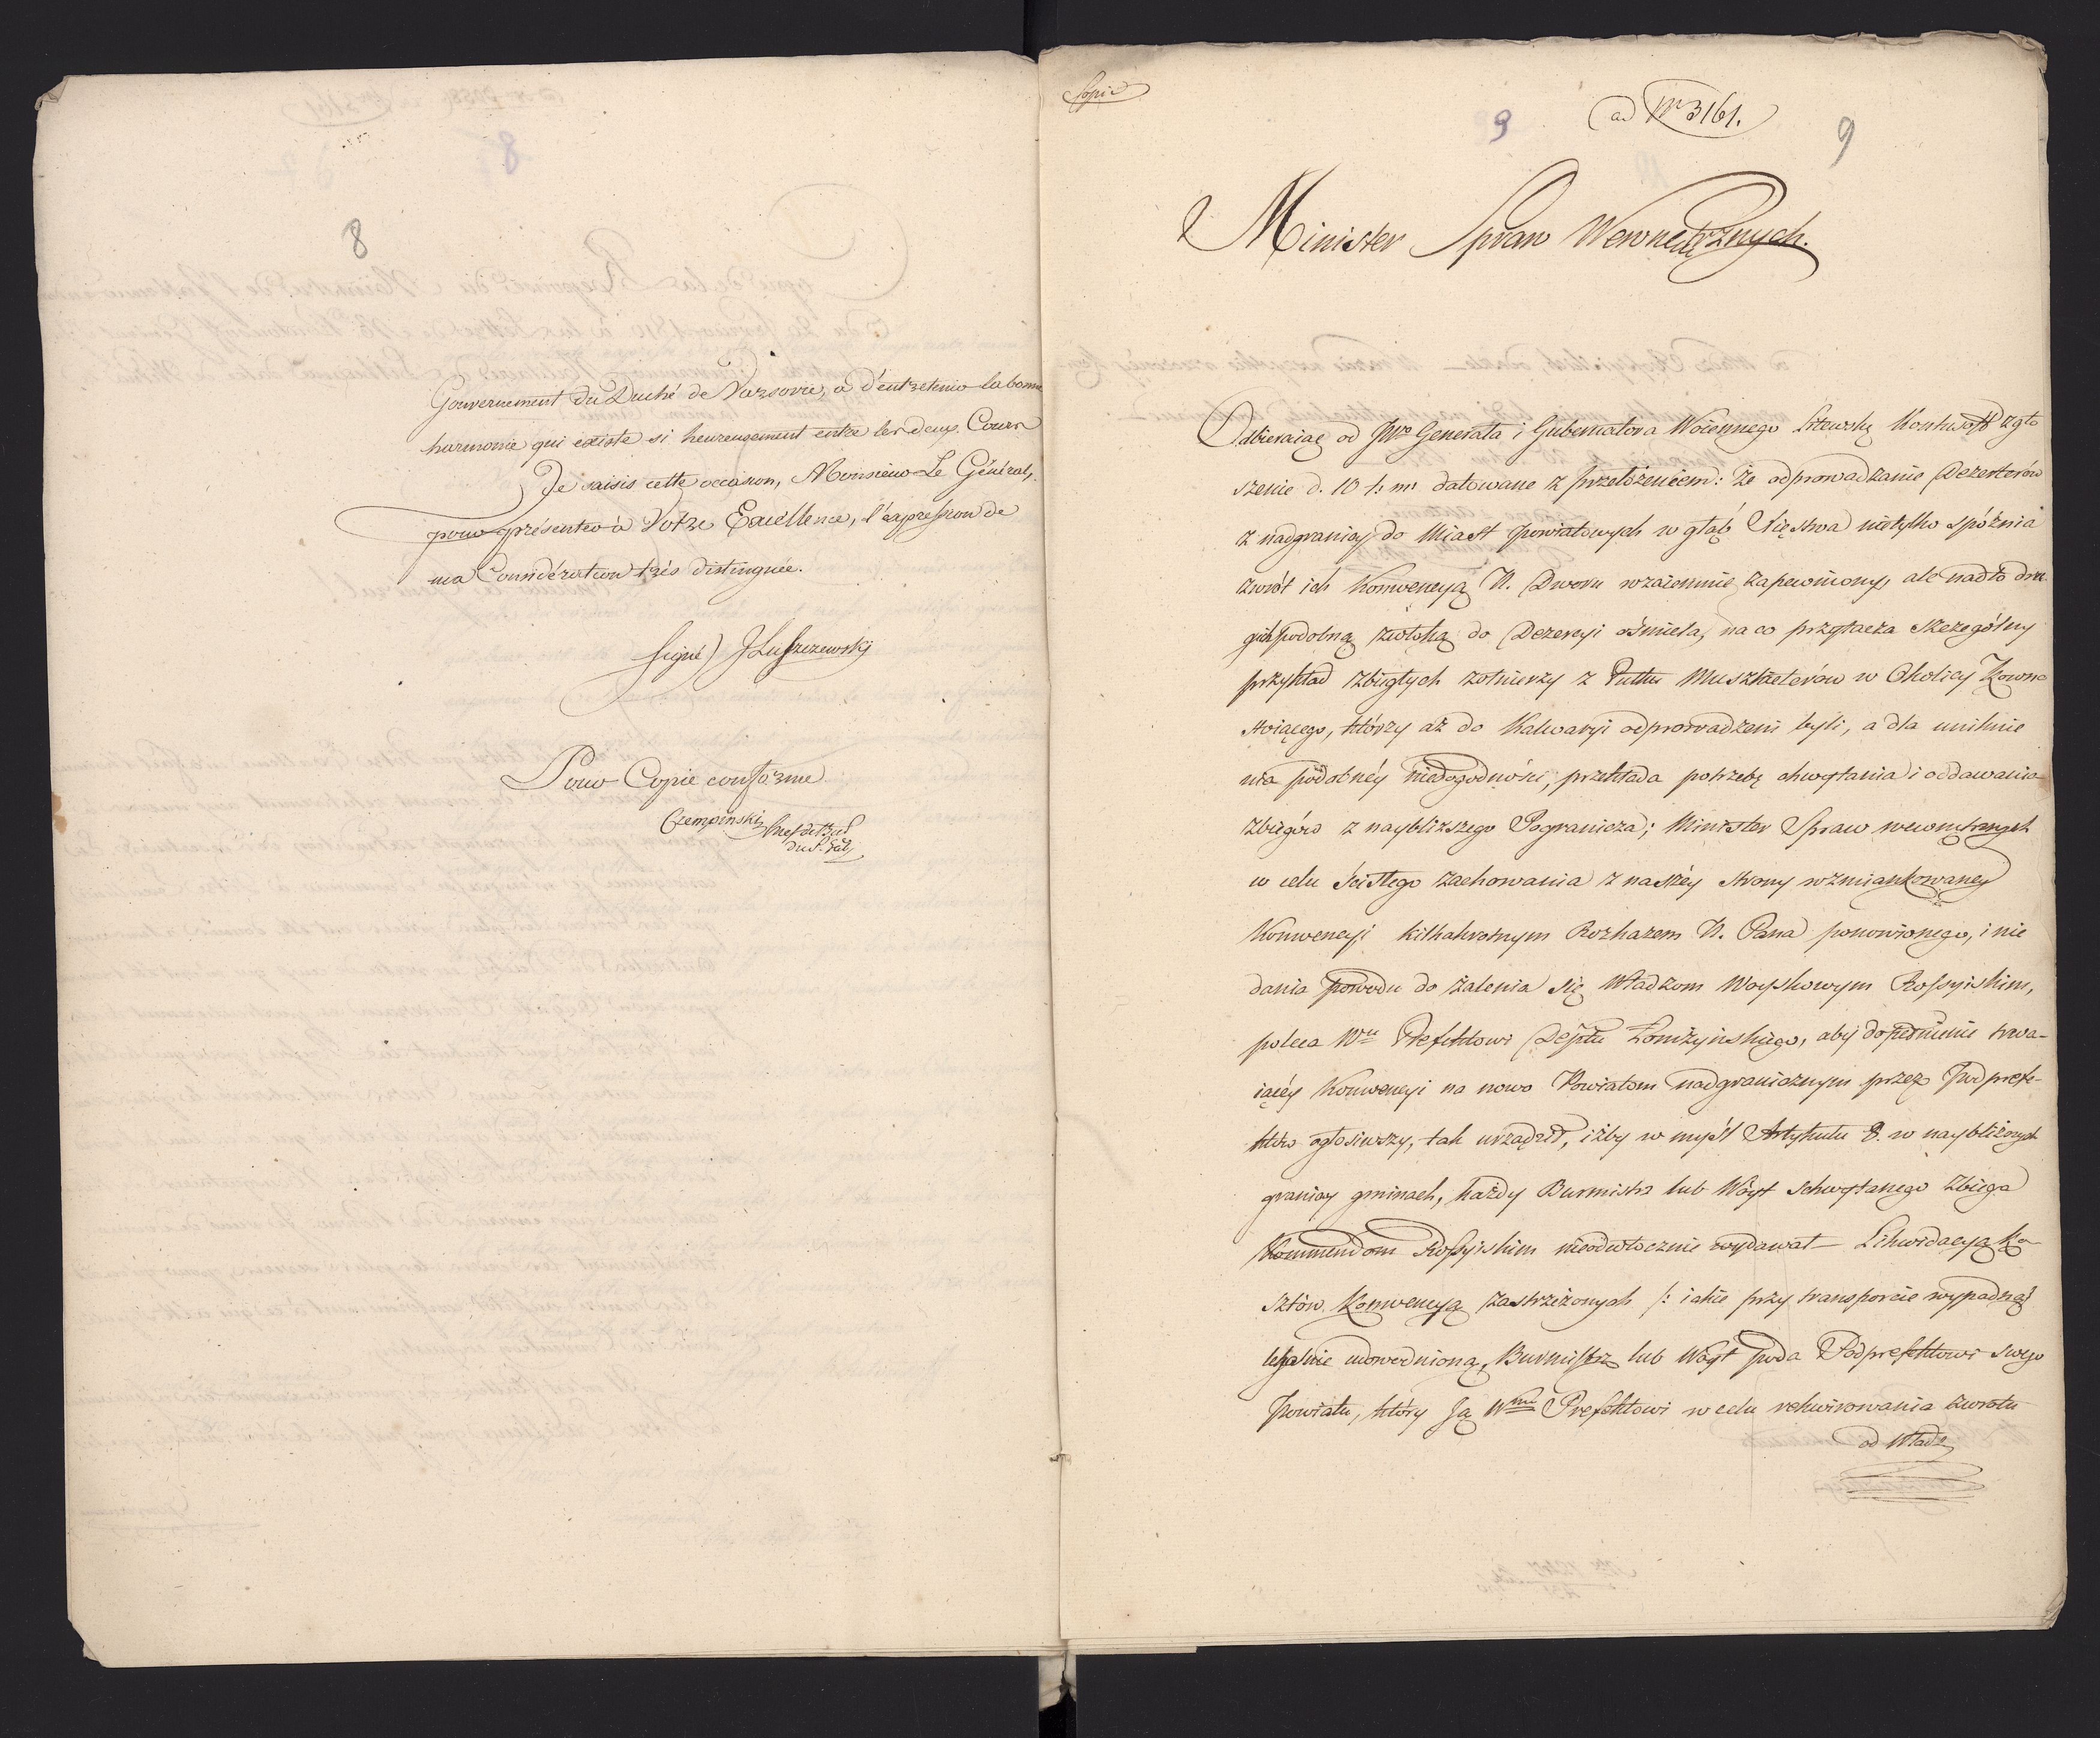 8
8
Gouvernement du Duché de Varsovie, a d'entretenir la bonne
harmonie qui existe si heureusement entre les deux Cours
Je saisis cette occasion, Monsieur Le Général,
pour présenter à Votre Excellence, l'expression de
ma Considération très distinguée.
signé) J Łuszczewski
Pour Copie conforme
Czempinski Chef de Bur
Copia
ad Nr 3161.
9
9
Minister Spraw Wewnętrznych.
Odbieraiąc od JWo Generała i Gubernatora Woiennego Litewsky zgło
szenie d. 10 t: m: datowane z przełożeniem: że odprowadzanie Dezerterów
z nadgranicy do Miast Powiatowych w głąb Xięstwa nietylko spóźnia
zwrot ich Konwencyą N. Dworu wzaiemnie zapewniony, ale nadto dru
gich podobną zwłoką do Dezercyi ośmiela, na co przytacza szczególny
przykład zbiegłych żołnierzy z Pułku Muszkieterów w Okolicy Kowna
stoiącego, którzy aż do Kalwaryi odprowadzeni byli, a dla uniknie
nia podobnéy niedogodności, przekłada potrzebę chwytania i oddawania
zbiegów z naybliższego Pogranicza; Minister Spraw wewnętrznych
w celu ścisłego zachowania z naszéy strony wzmiankowaney
Konwencyi kilkakrotnym Rozkazem N. Pana ponowionego, i nie
dania powodu do żalenia się Władzom Woyskowym Rossyiskim,
poleca Wmu Prefektowi Deptu Łomżyńskiego, aby dopełnienie trwa-
iącéy Konwencyi na nowo Powiatom nadgranicznym przez Podprefe-
któw ogłosiwszy, tak urządził, iżby w myśl Artykułu 8. w naybliższych
granicy gminach, każdy Burmistrz lub Wóyt schwytanego zbiega
Kommendom Rossyiskim nieodwłocznie wydawał — Likwidacyą Ko-
sztów Konwencyą zastrzeżonych /: iakie przy transporcie wypadną
legalnie udowodnioną, Burmistrz lub Wóyt poda Podprefektowi swego
Powiatu, który Ją Wmu Prefektowi w celu rekwirowania zwrotu
od Władz